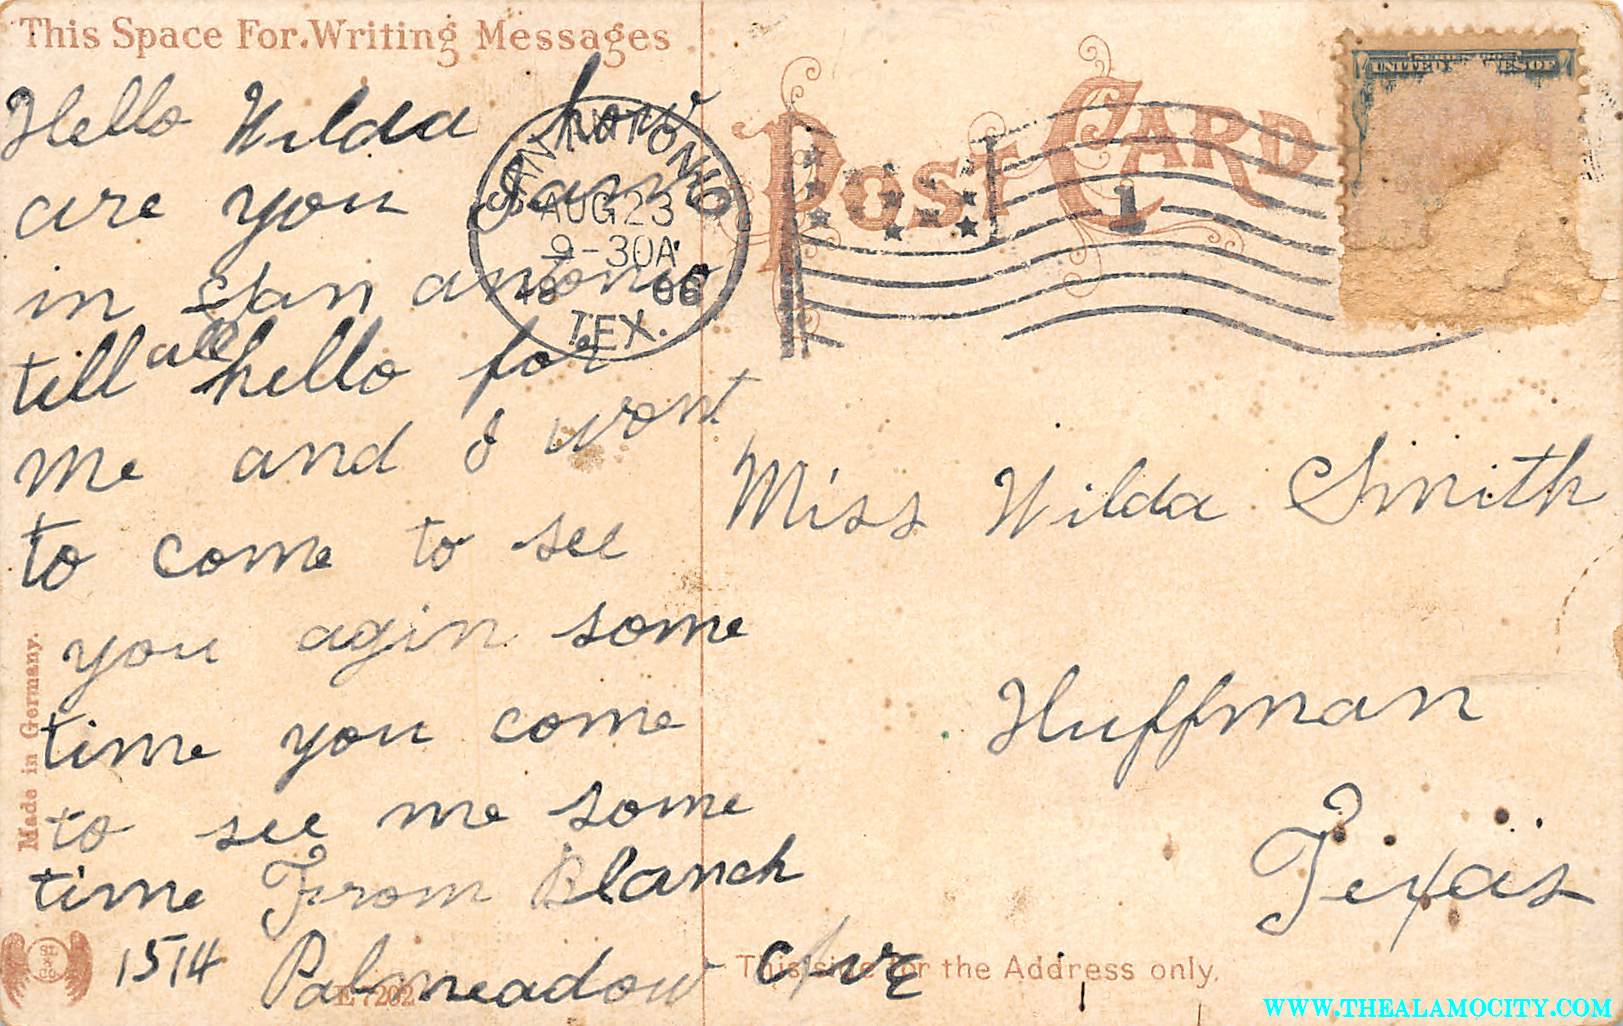 This Space For Writing Messages
Hello Wilda how
are you I am
in San antonio
till all hello for
me and I wont
to come to see
you agin some
time you come
to see me some
time From Blanch
1514 Palmeadow Ave
Made in Germany.
E 7202
SAN ANTONIO
AUG 23
9-30A
TEX.
POST CARD
1
UNITED STATES OF
Miss Wilda Smith
Huffman
Texas
This side for the Address only.
WWW.THEALAMOCITY.COM